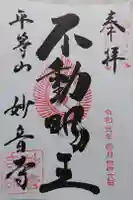 奉拝
令和元年
不動明王
平等山
妙音寺